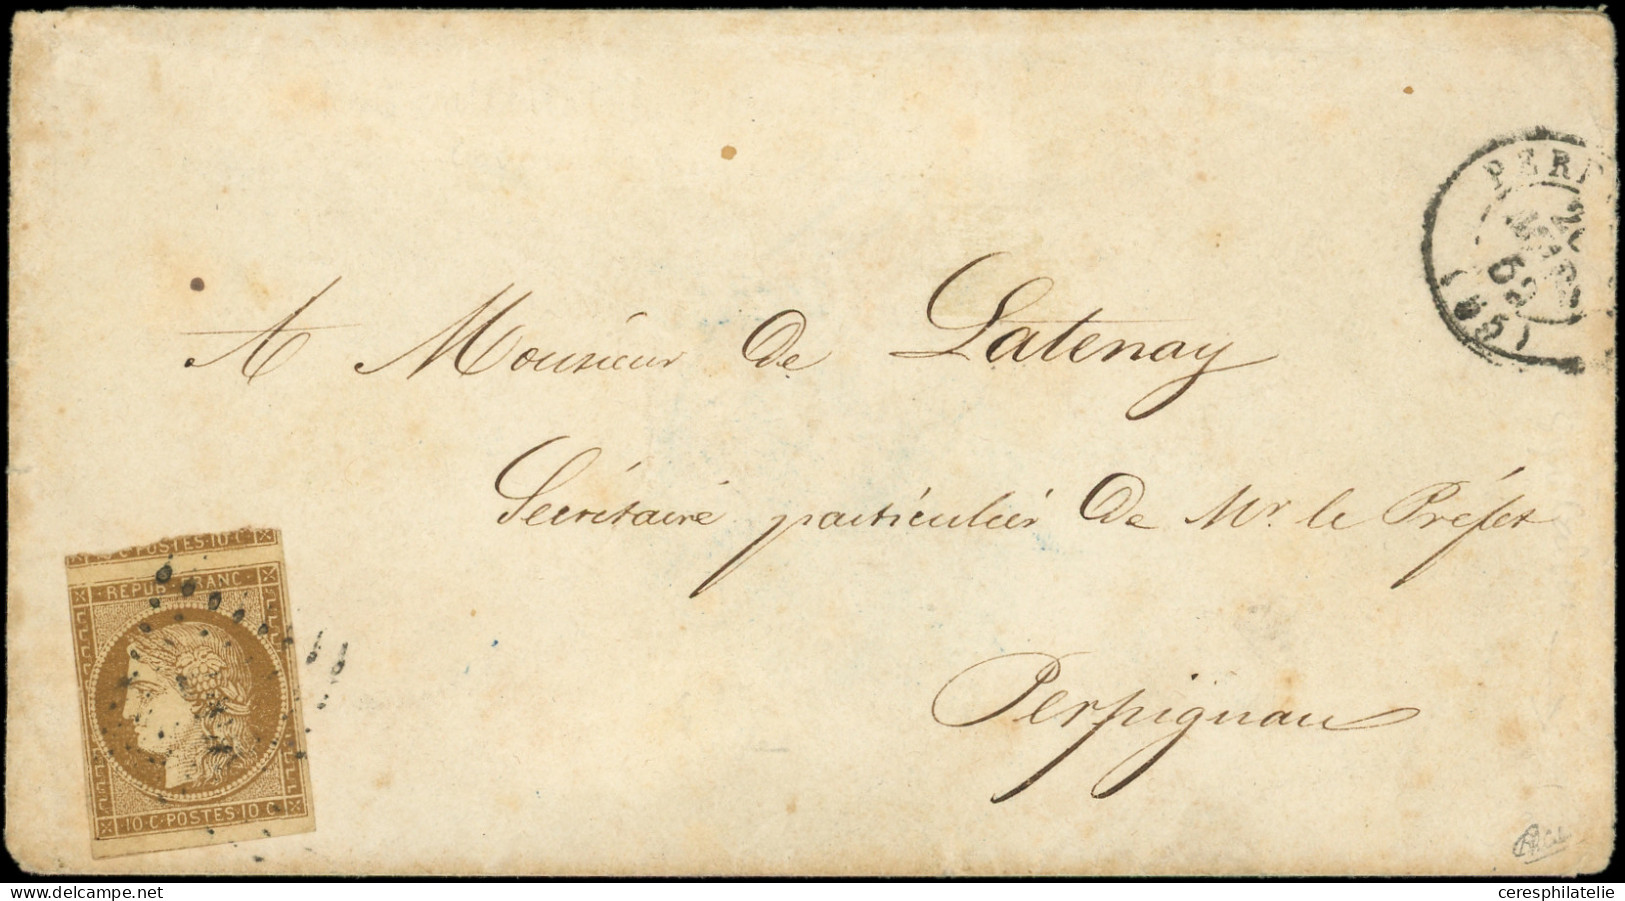 PERP
52
(65)
A Monsieur De Latenay
Secrétaire particulier De Mr. le Préfet
Perpignan
10·C·POSTES·10·C
REPUB·FRANC·
10·C·POSTES·10·C
ceresphilatelie